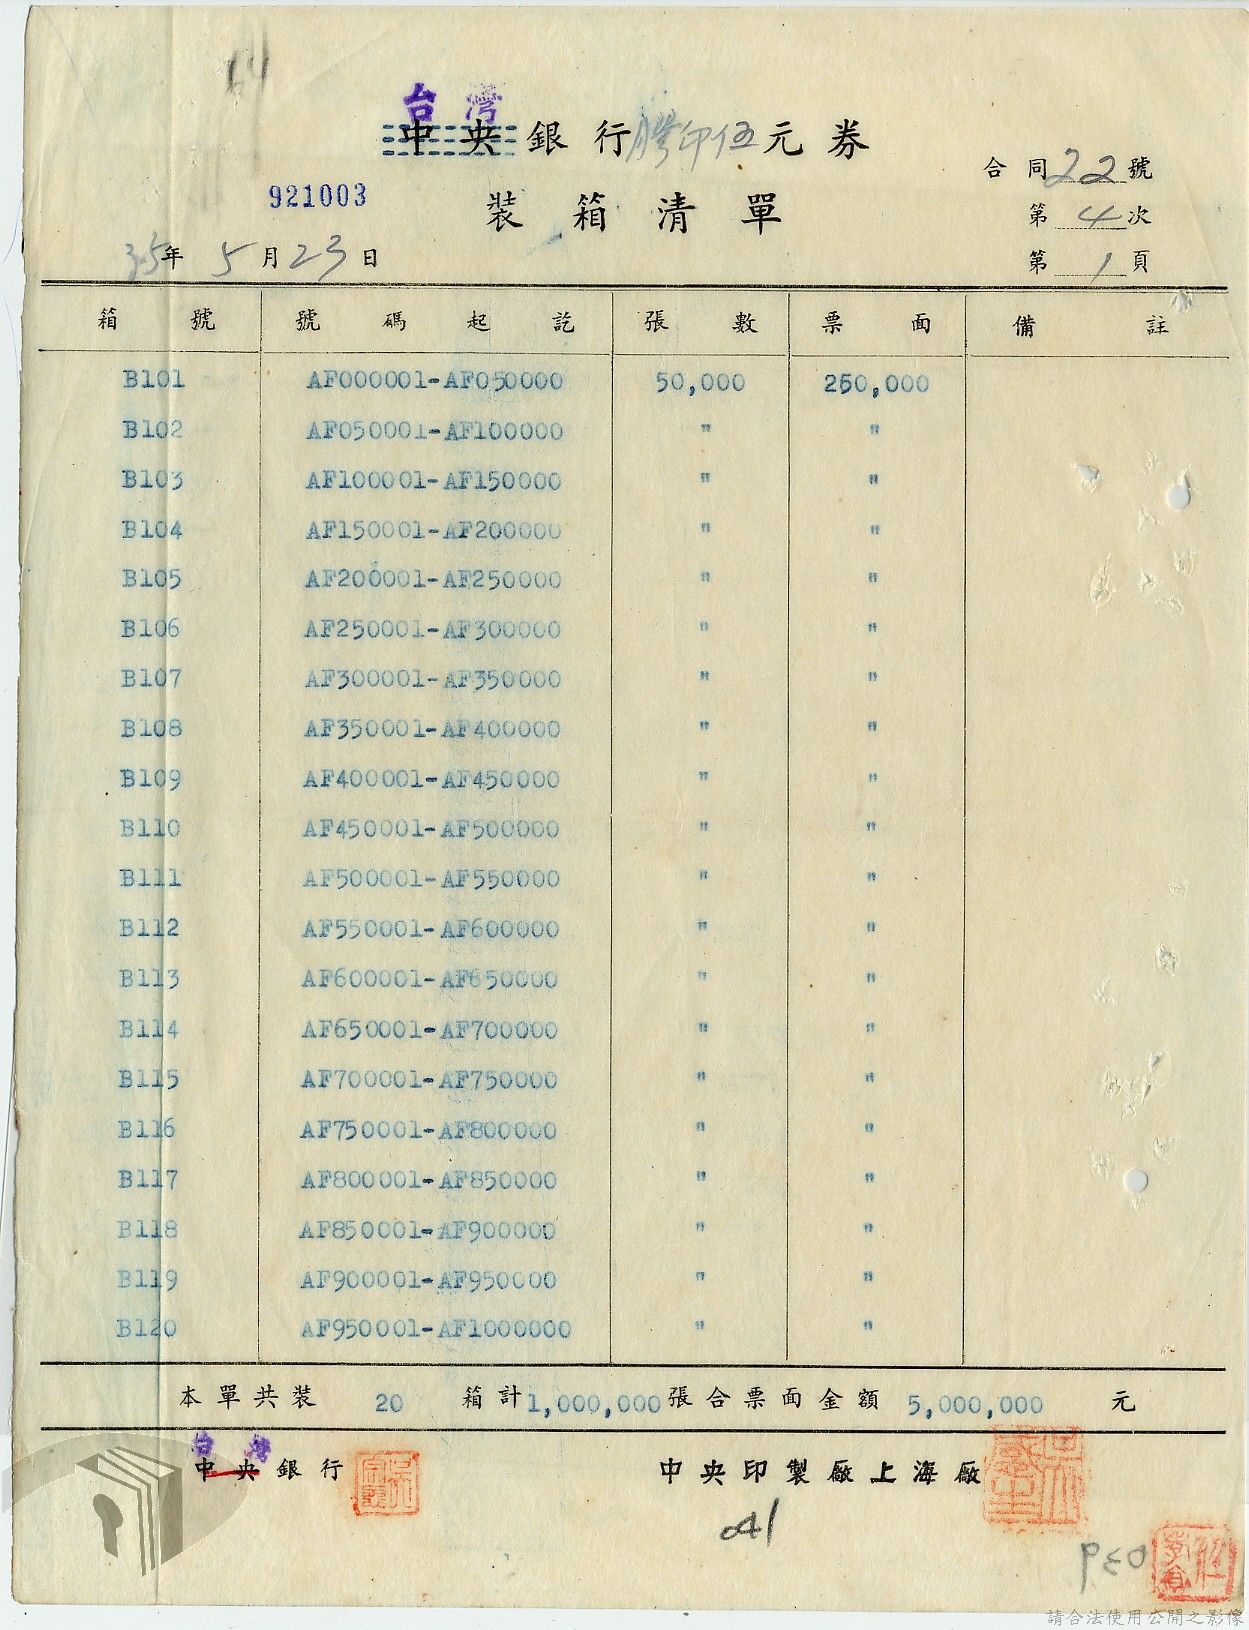 台灣
中央銀行膠印伍元券
合同22號
921003
裝箱清單
第4次
35年5月23日
第1頁
箱號 號碼起訖 張數 票面 備註
B101 AF000001-AF050000 50,000 250,000
B102 AF050001-AF100000 " "
B103 AF100001-AF150000 " "
B104 AF150001-AF200000 " "
B105 AF200001-AF250000 " "
B106 AF250001-AF300000 " "
B107 AF300001-AF350000 " "
B108 AF350001-AF400000 " "
B109 AF400001-AF450000 " "
B110 AF450001-AF500000 " "
B111 AF500001-AF550000 " "
B112 AF550001-AF600000 " "
B113 AF600001-AF650000 " "
B114 AF650001-AF700000 " "
B115 AF700001-AF750000 " "
B116 AF750001-AF800000 " "
B117 AF800001-AF850000 " "
B118 AF850001-AF900000 " "
B119 AF900001-AF950000 " "
B120 AF950001-AF1000000 " "
本單共裝 20 箱計1,000,000張合票面金額 5,000,000 元
台灣
中央銀行 中央印製廠上海廠
041
請合法使用公開之影像